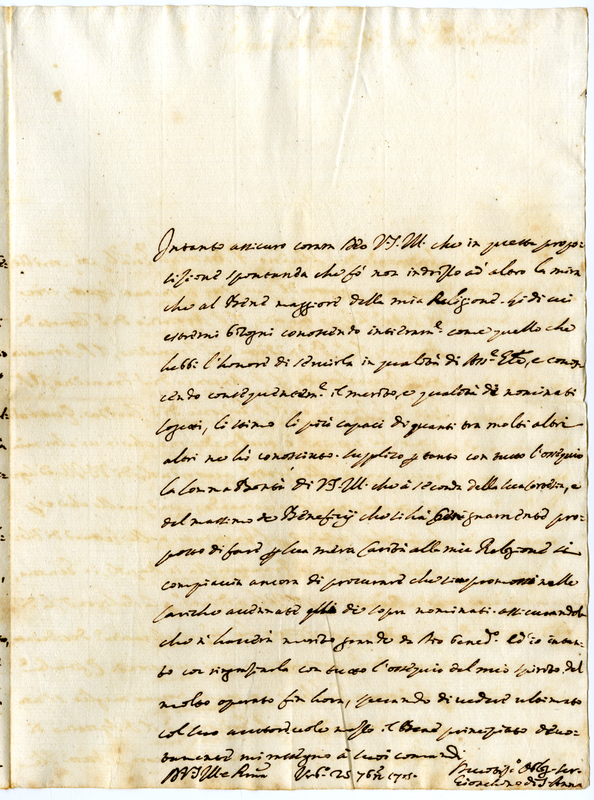 Intanto assicuro coram Deo V.S. Ill. che in questa propo-
sitione spontanea che fò non indrizzo ad altro la mira
che al Bene maggiore della mia Religione, li di cui
estremi bisogni conoscendo intieram.e come quello che
hebbi l'honore di servirla in qualità di Ass.e Gñle, e conos-
cendo conseguentem.e il merito, e qualità de nominati
sogetti, li stimo li più capaci di quanti tra molti altri
altri ne hò conosciuto. supplico p tanto con tutto l'ossequio
la somma Bontà di V.S. Ill. che à seconda della sua , e
del massimo de Beneficij che si hà benignamente pro-
posto di fare p sua mera Carità alla mia Religione si
compiaccia ancora di procurare che sieno promossi nelle
Cariche accennate di sopra nominati. assicurandola
che n'haverà merito grande da Dio bened.o ed io intan-
to con tutto l'ossequio del mio spirito del
molto operato fin hora, sperando di vedere ultimato
col suo autorevole il Bene principiato devo-
tamente mi rassegno à suoi comandi
D V.S. Ill. e Rma 25 7bre 1705.
 Oblig. Ser.
 di S. Anna